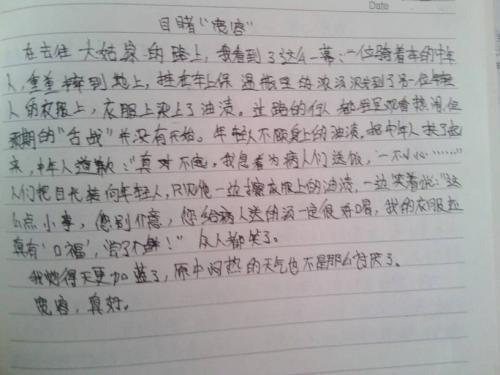 Date
目睹“宽容”
在去往大姑家的路上，我看到了这么一幕：一位骑着车的中年
人，重重摔到地上，挂在车上保温瓶里的浓汤溅到了另一位年轻
人的衣服上，衣服上染上了油渍。过路的行人都驻足观看热闹，但
预期的“舌战”并没有开始。年轻人不顾身上的油渍，把中年人扶了起
来，中年人道歉：“真对不起，我急着为病人们送饭，一不小心……”
人们把目光转向年轻人，只见他一边擦衣服上的油渍，一边笑着说：“这
么点小事，您别介意，您给病人送的汤一定很好喝，我的衣服拉
真有‘口福’，尝了个鲜！”众人都笑了。
我觉得天更加蓝了，原中闷热的天气也不是那么讨厌了。
宽容，真好。